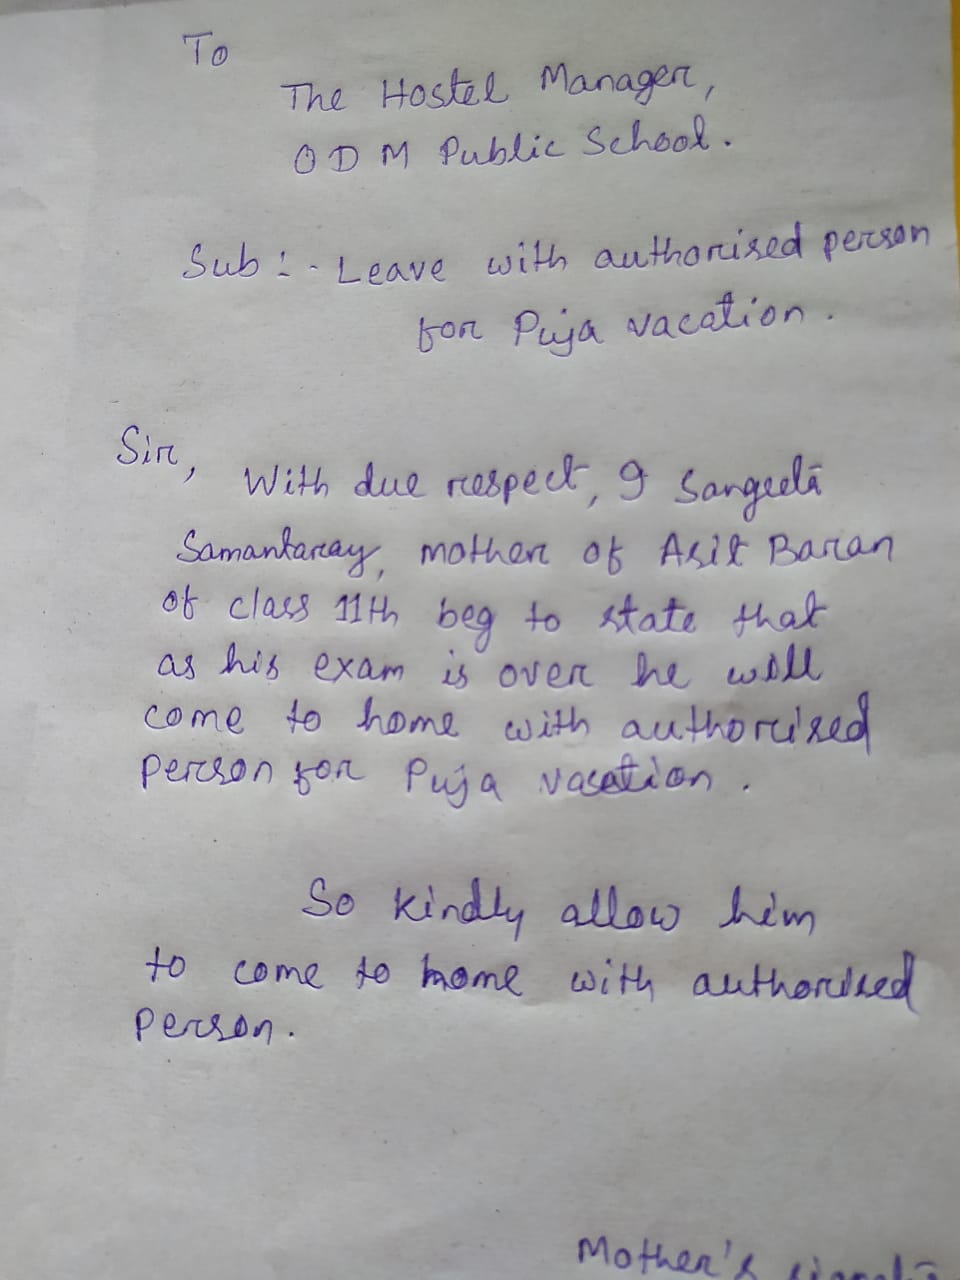 To
The Hostel Manager,
ODM Public School.
Sub:- Leave with authorised person
for Puja vacation.
Sir,
With due respect, I Sangeetā
Samantaray, mother of Asit Baran
of class 11th beg to state that
as his exam is over he will
come to home with authorised
person for Puja vacation.
So kindly allow him
to come to home with authorised
person.
Mother's